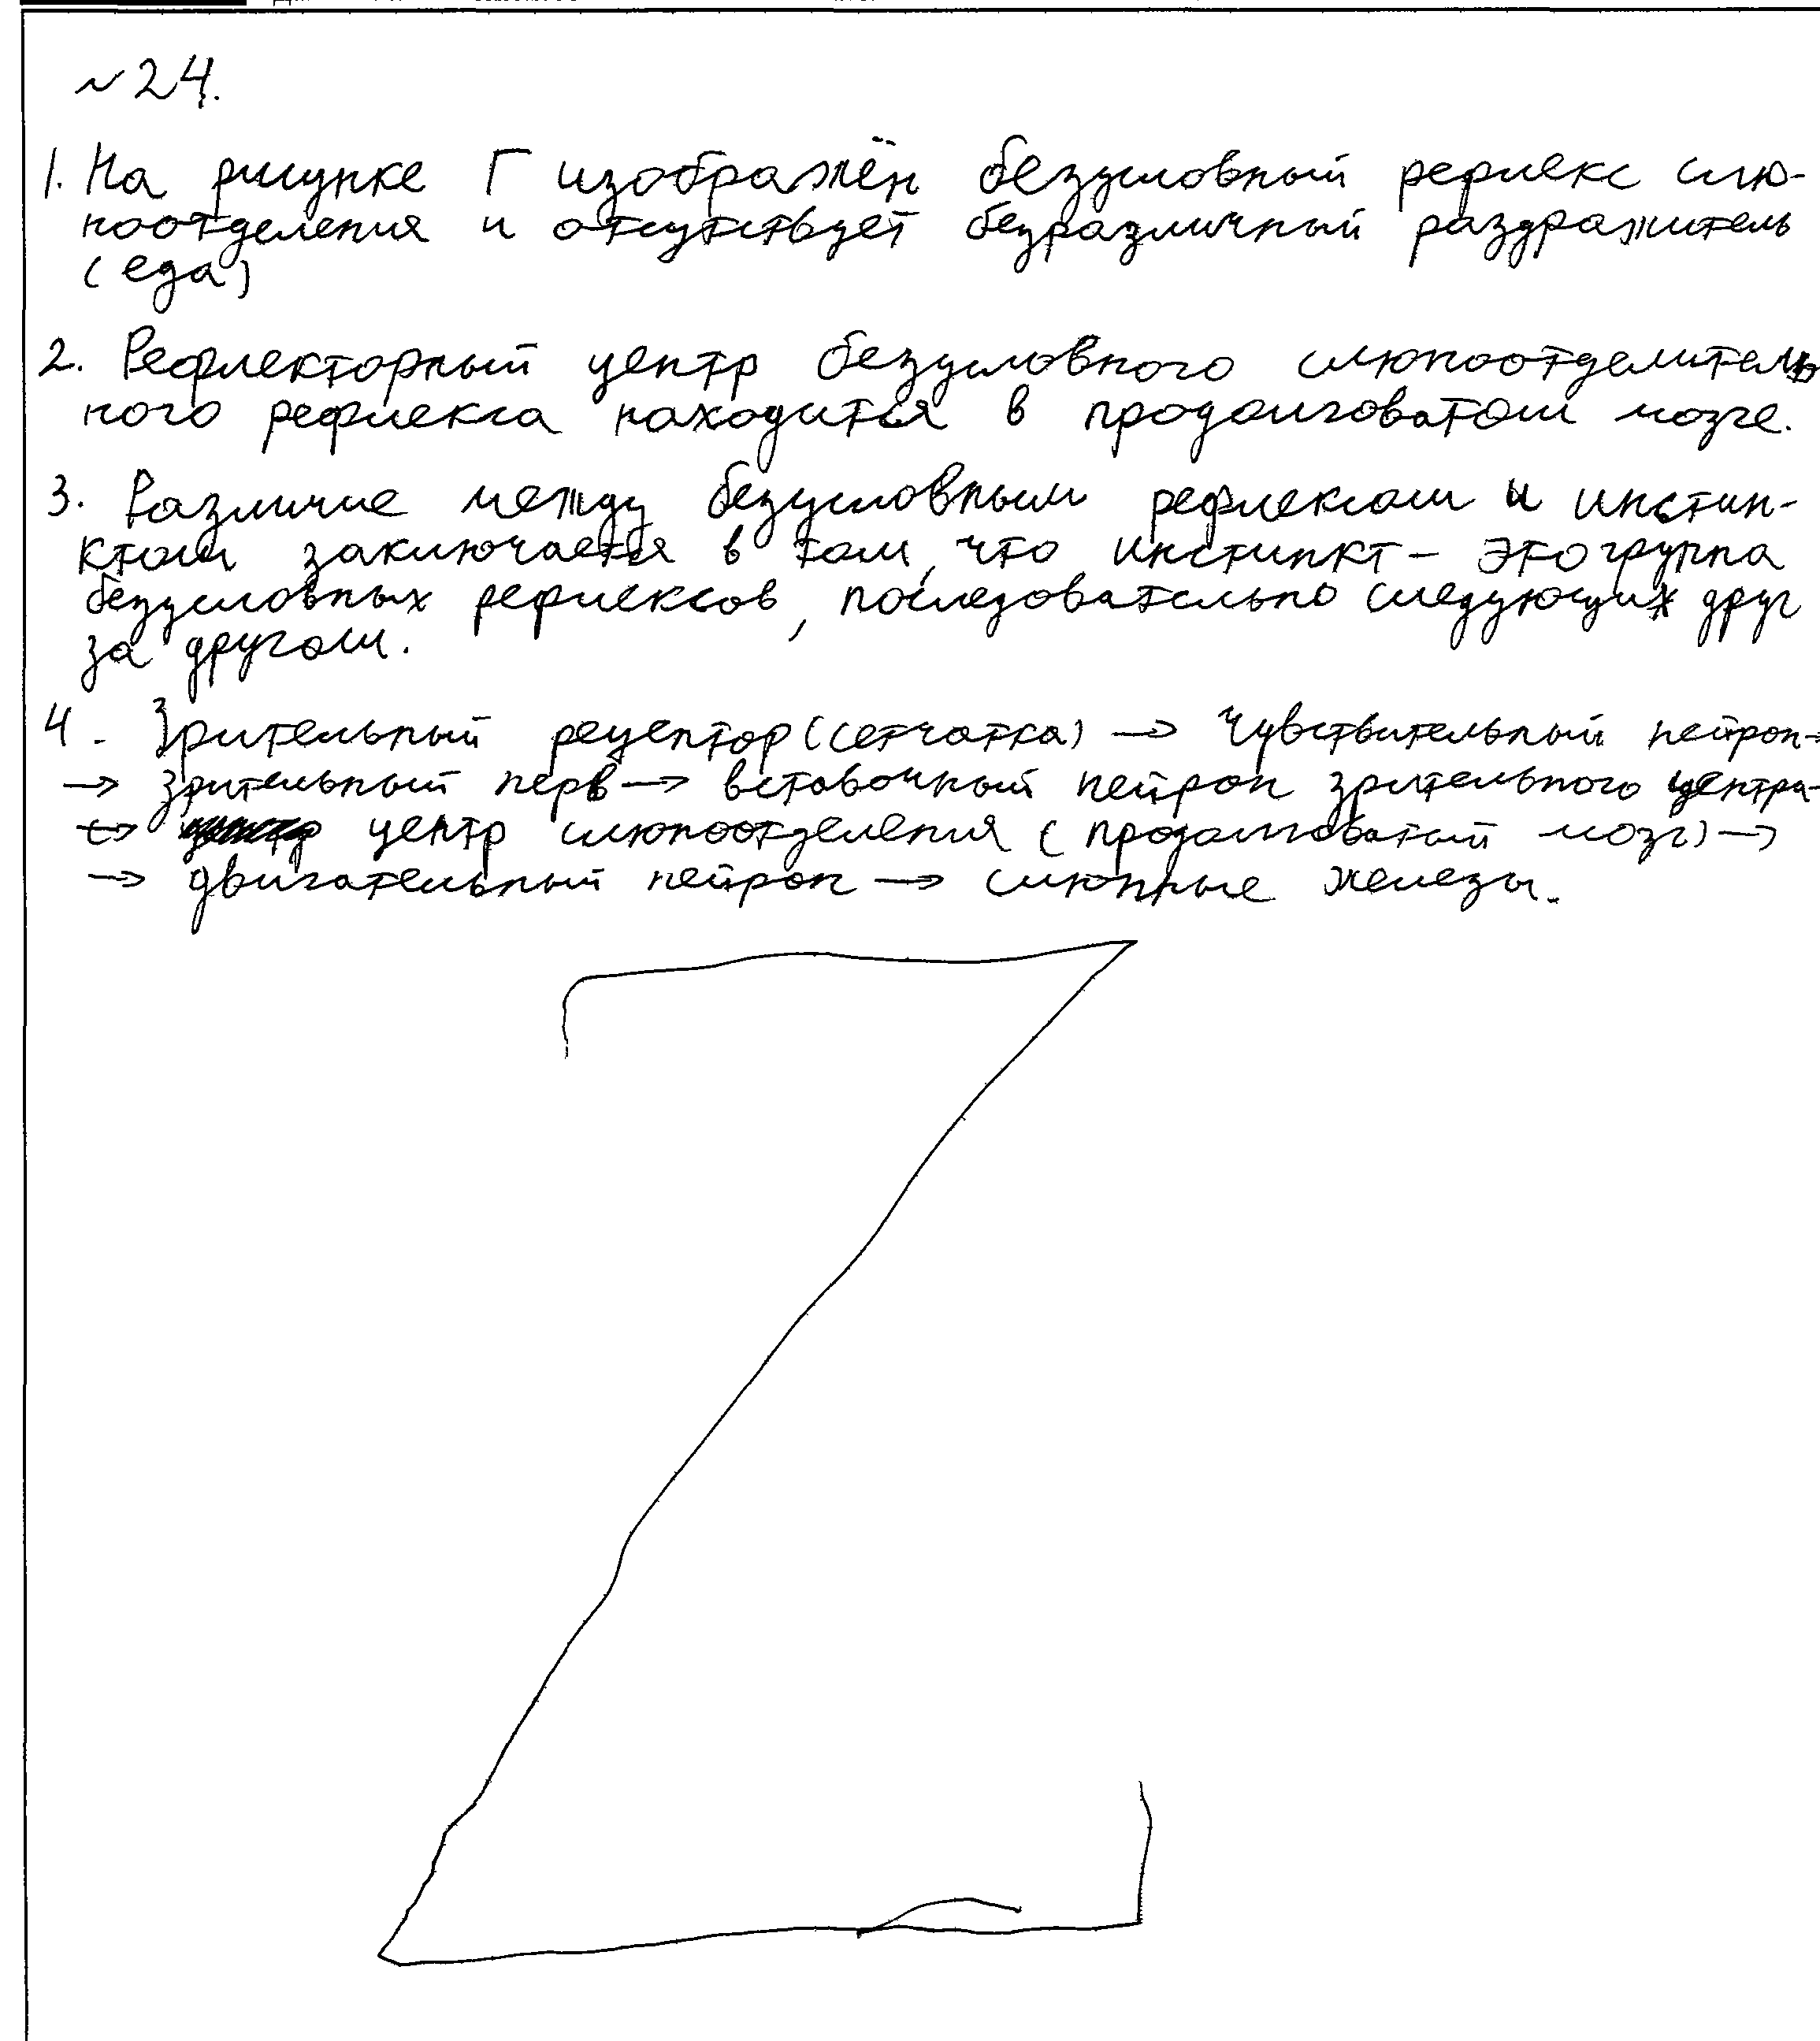 ~24.
1. На рисунке Г изображён безусловный рефлекс слю-
ноотделения и отсутствует безразличный раздражитель
(еда)
2. Рефлекторный центр безусловного слюноотделитель
ного рефлекса находится в продолговатом мозге.
3. Различие между безусловным рефлексом и инстин-
ктом заключается в том, что инстинкт - это группа
безусловных рефлексов, последовательно следующих друг
за другом.
4. Зрительный рецептор (сетчатка) → Чувствительный нейрон→
→ зрительный нерв → вставочный нейрон зрительного центра-
→ центр слюноотделения (продолговатый мозг) →
→ двигательный нейрон → слюнные железы.